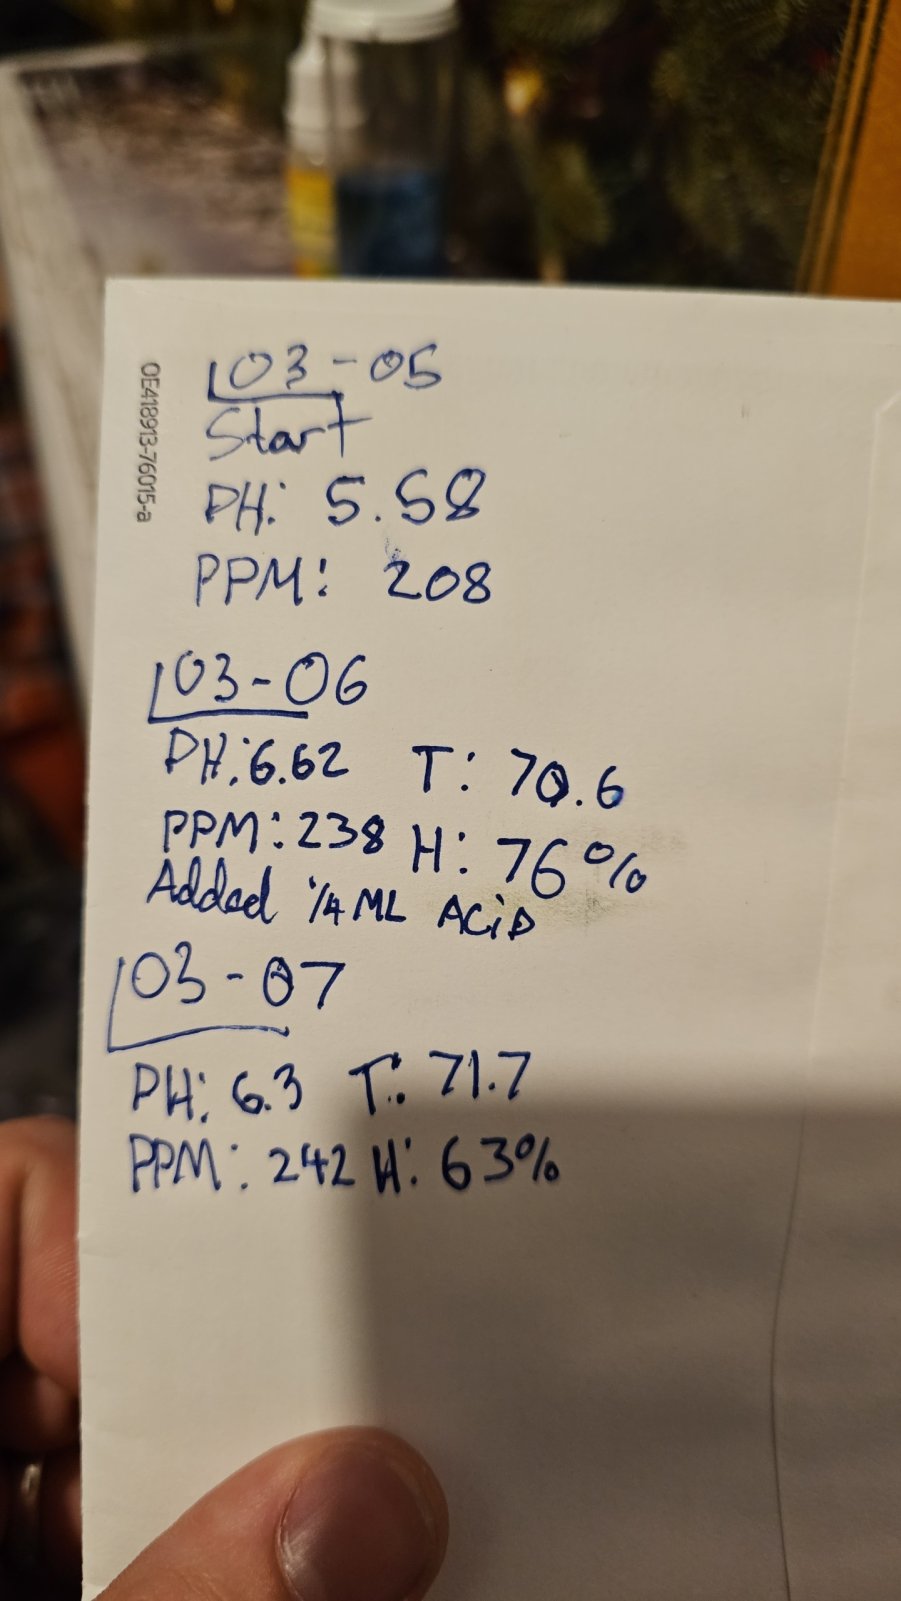 OE418913-76015-a
03-05
Start
PH: 5.58
PPM: 208
03-06
PH: 6.62 T: 70.6
PPM: 238 H: 76%
Added 1/4 ML ACiD
03-07
PH: 6.3 T: 71.7
PPM: 242 H: 63%